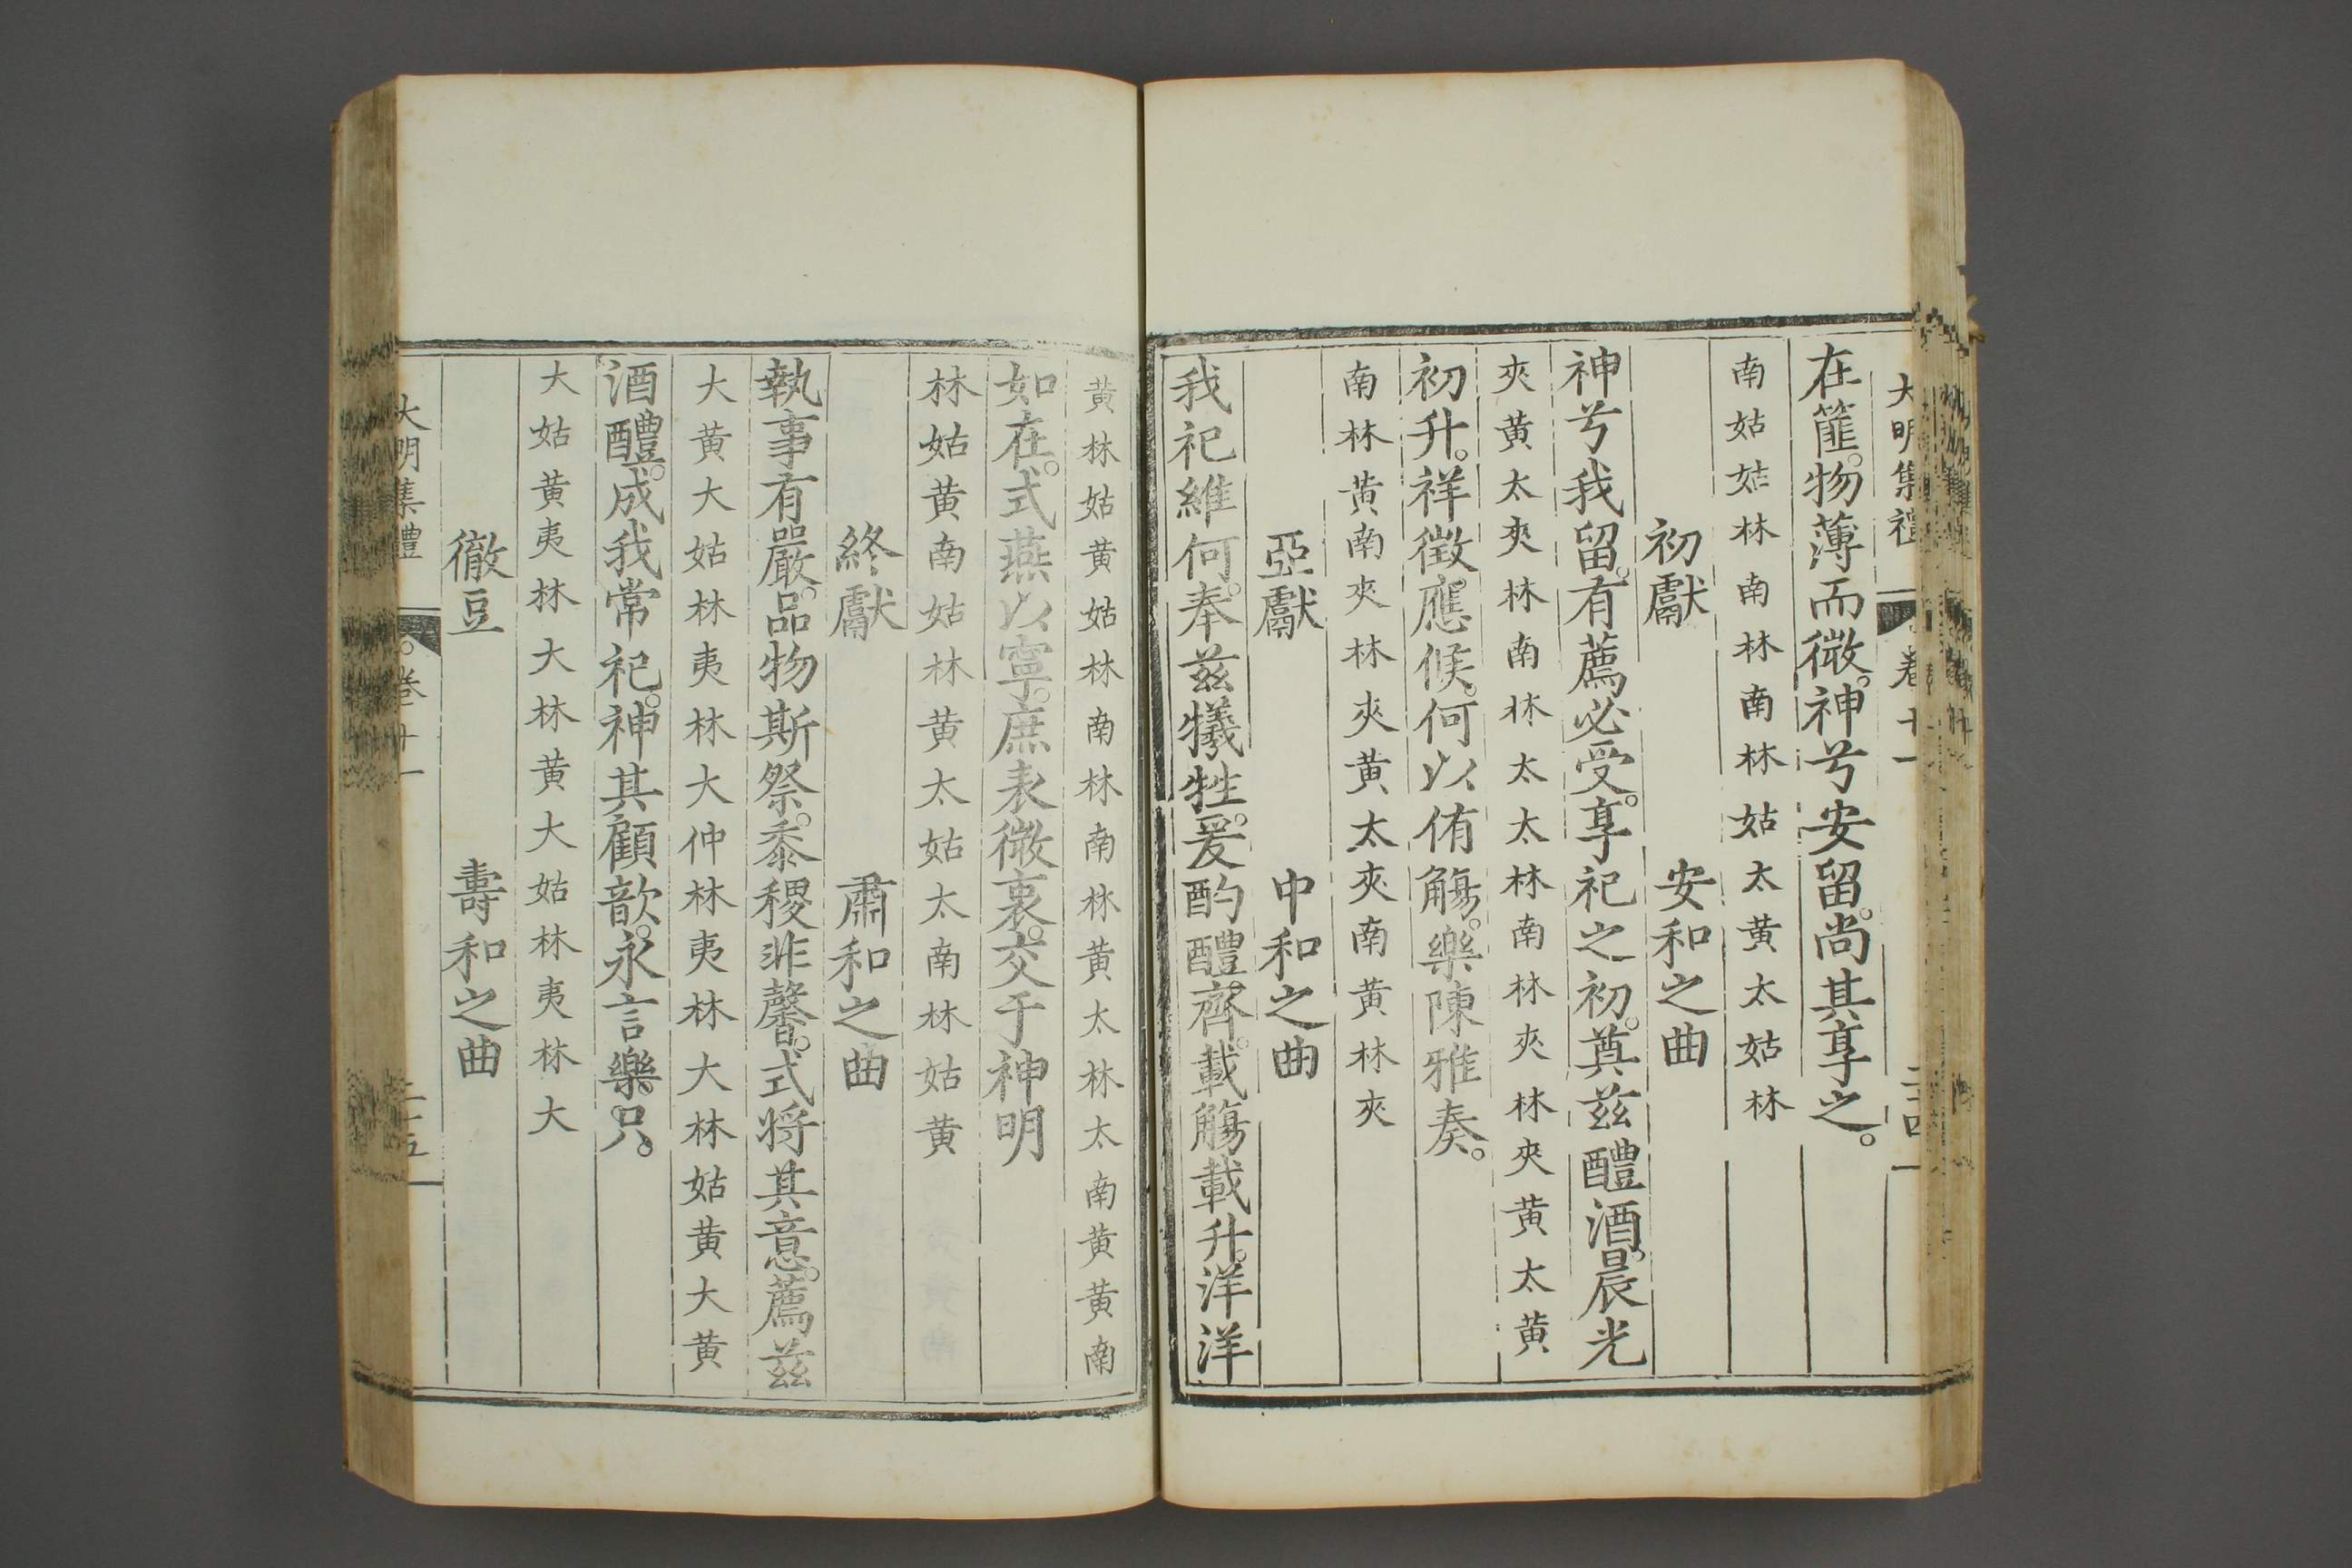 大明集禮 卷十一
在篚。物薄而微。神兮安留。尚其享之。
南姑姑林南林南林姑太黄太姑林
初獻 安和之曲
神兮我留。有薦必受。享祀之初。奠茲醴酒。晨光
夾黄太夾林南林太太林南林夾林夾黄太黄
初升。祥徴應候。何以侑觴。樂陳雅奏。
南林黄南夾林夾黄太夾南黄林夾
亞獻 中和之曲
我祀維何。奉茲犧牲。爰酌醴齊。載觴載升。洋洋
黄林姑黄姑林南林南林黄太林太南黄黄南
如在。式燕以寧。庶表微衷。交于神明
林姑黄南姑林黄太姑太南林姑黄
終獻 肅和之曲
執事有嚴。品物斯祭。黍稷非馨。式将其意。薦茲
大黄大姑林夷林大仲林夷林大林姑黄大黄
酒醴。成我常祀。神其顧歆。永言樂只。
大姑黄夷林大林黄大姑林夷林大
徹豆 壽和之曲
大明集禮 卷十一 二十五